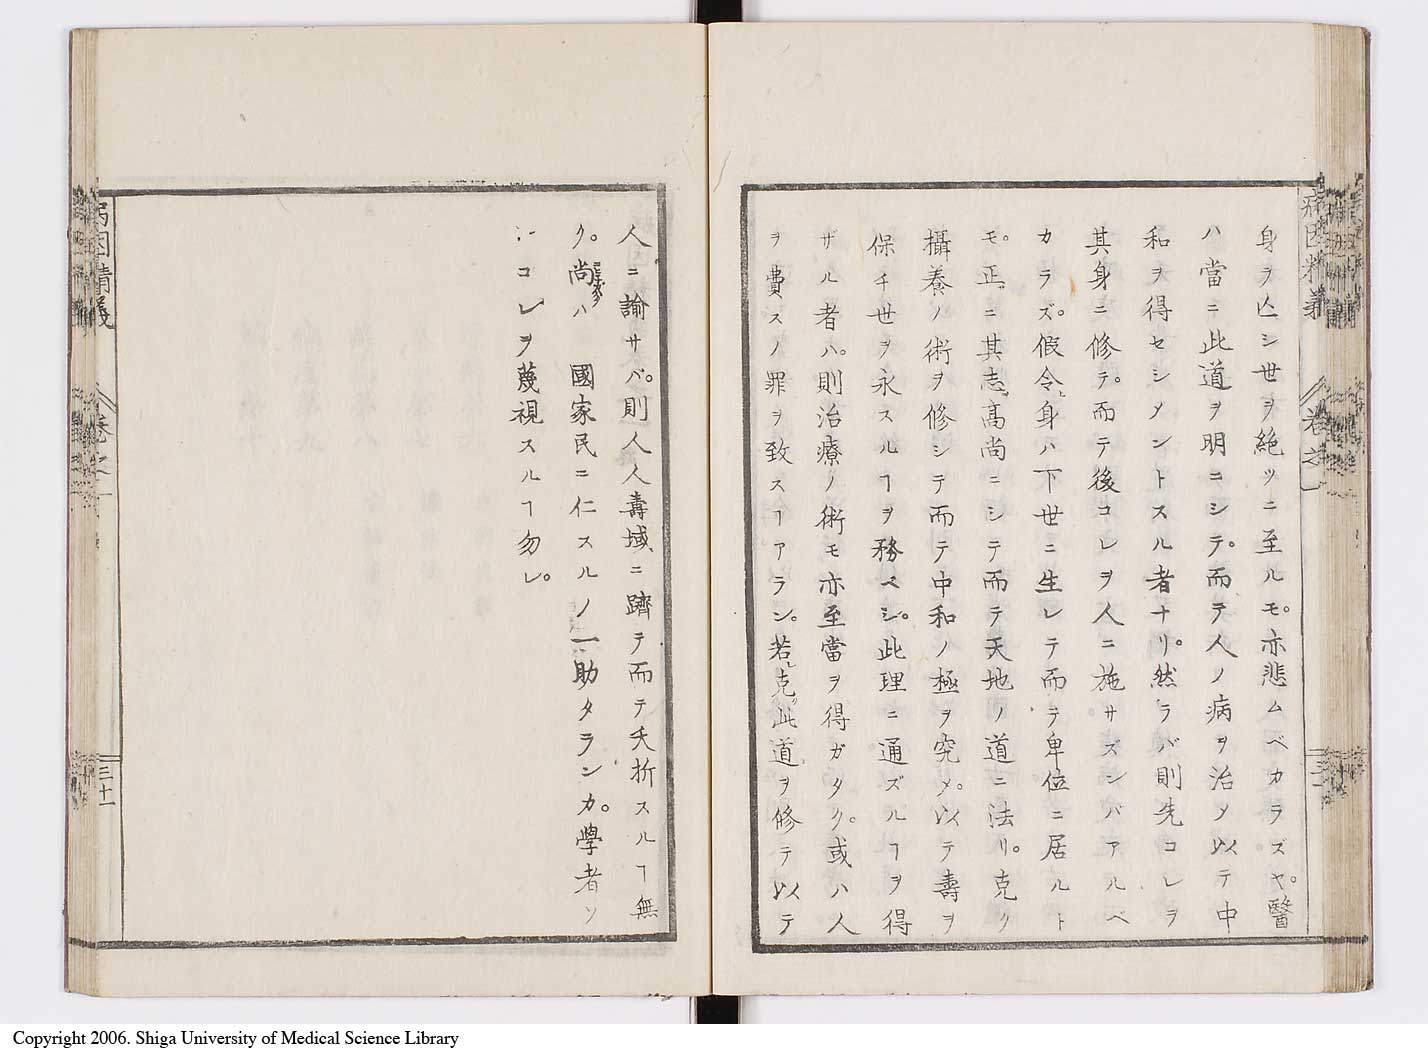 病因精義 卷之一
身ヲ亡シ世ヲ絶ツニ至ルモ。亦悲ムベカラズヤ。醫
ハ當ニ此道ヲ明ニシテ。而テ人ノ病ヲ治メ以テ中
和ヲ得セシメントスル者ナリ。然ラバ則先コレヲ
其身ニ修テ。而テ後コレヲ人ニ施サズンバアルベ
カラズ。假令身ハ下世ニ生レテ而テ卑位ニ居ルト
モ。正ニ其志高尚ニシテ而テ天地ノ道ニ法リ。克ク
攝養ノ術ヲ修シテ而テ中和ノ極ヲ究メ。以テ壽ヲ
保チ世ヲ永スルヿヲ務ベシ。此理ニ通ズルヿヲ得
ザル者ハ。則治療ノ術モ亦至當ヲ得ガタク。或ハ人
ヲ費スノ罪ヲ致スヿアラン。若シ克ク此道ヲ修テ以テ
人ニ諭サバ。則人人壽域ニ躋テ而テ夭折スルヿ無
ク。尚ハ 國家民ニ仁スルノ一助タランカ。學者ソ
コレヲ蔑視スルヿ勿レ。
病因精義 卷之一 三十一
Copyright 2006. Shiga University of Medical Science Library